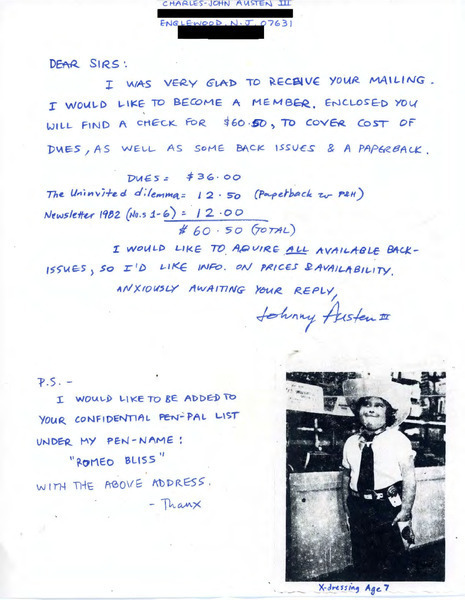 CHARLES-JOHN AUSTEN III
ENGLEWOOD, N.J. 07631
DEAR SIRS:
I WAS VERY GLAD TO RECEIVE YOUR MAILING.
I WOULD LIKE TO BECOME A MEMBER. ENCLOSED YOU
WILL FIND A CHECK FOR $60.50, TO COVER COST OF
DUES, AS WELL AS SOME BACK ISSUES & A PAPERBACK.
DUES = $36.00
The Uninvited dilemma = 12.50 (Paperback w P&H)
Newsletter 1982 (No.s 1-6) = 12.00
$60.50 (TOTAL)
I WOULD LIKE TO AQUIRE ALL AVAILABLE BACK-
ISSUES, SO I'D LIKE INFO. ON PRICES & AVAILABILITY.
ANXIOUSLY AWAITING YOUR REPLY,
Johnny Austen III
P.S. -
I WOULD LIKE TO BE ADDED TO
YOUR CONFIDENTIAL PEN-PAL LIST
UNDER MY PEN-NAME:
"ROMEO BLISS"
WITH THE ABOVE ADDRESS.
- Thanx
X-dressing Age 7